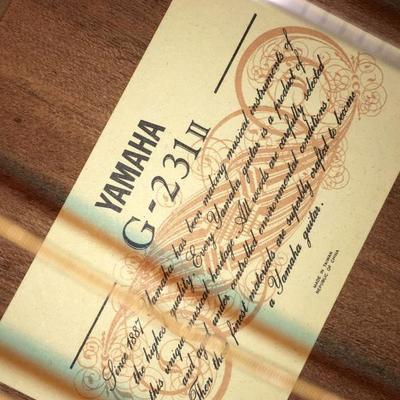 YAMAHA
G-231II
Since 1887 Yamaha has been making musical instruments of
the highest quality. Every Yamaha guitar is a product of
this unique musical heritage. All woods are carefully selected
and aged under controlled environmental conditions.
Then the finest materials are superbly crafted to become
a Yamaha guitar.
MADE IN TAIWAN
REPUBLIC OF CHINA